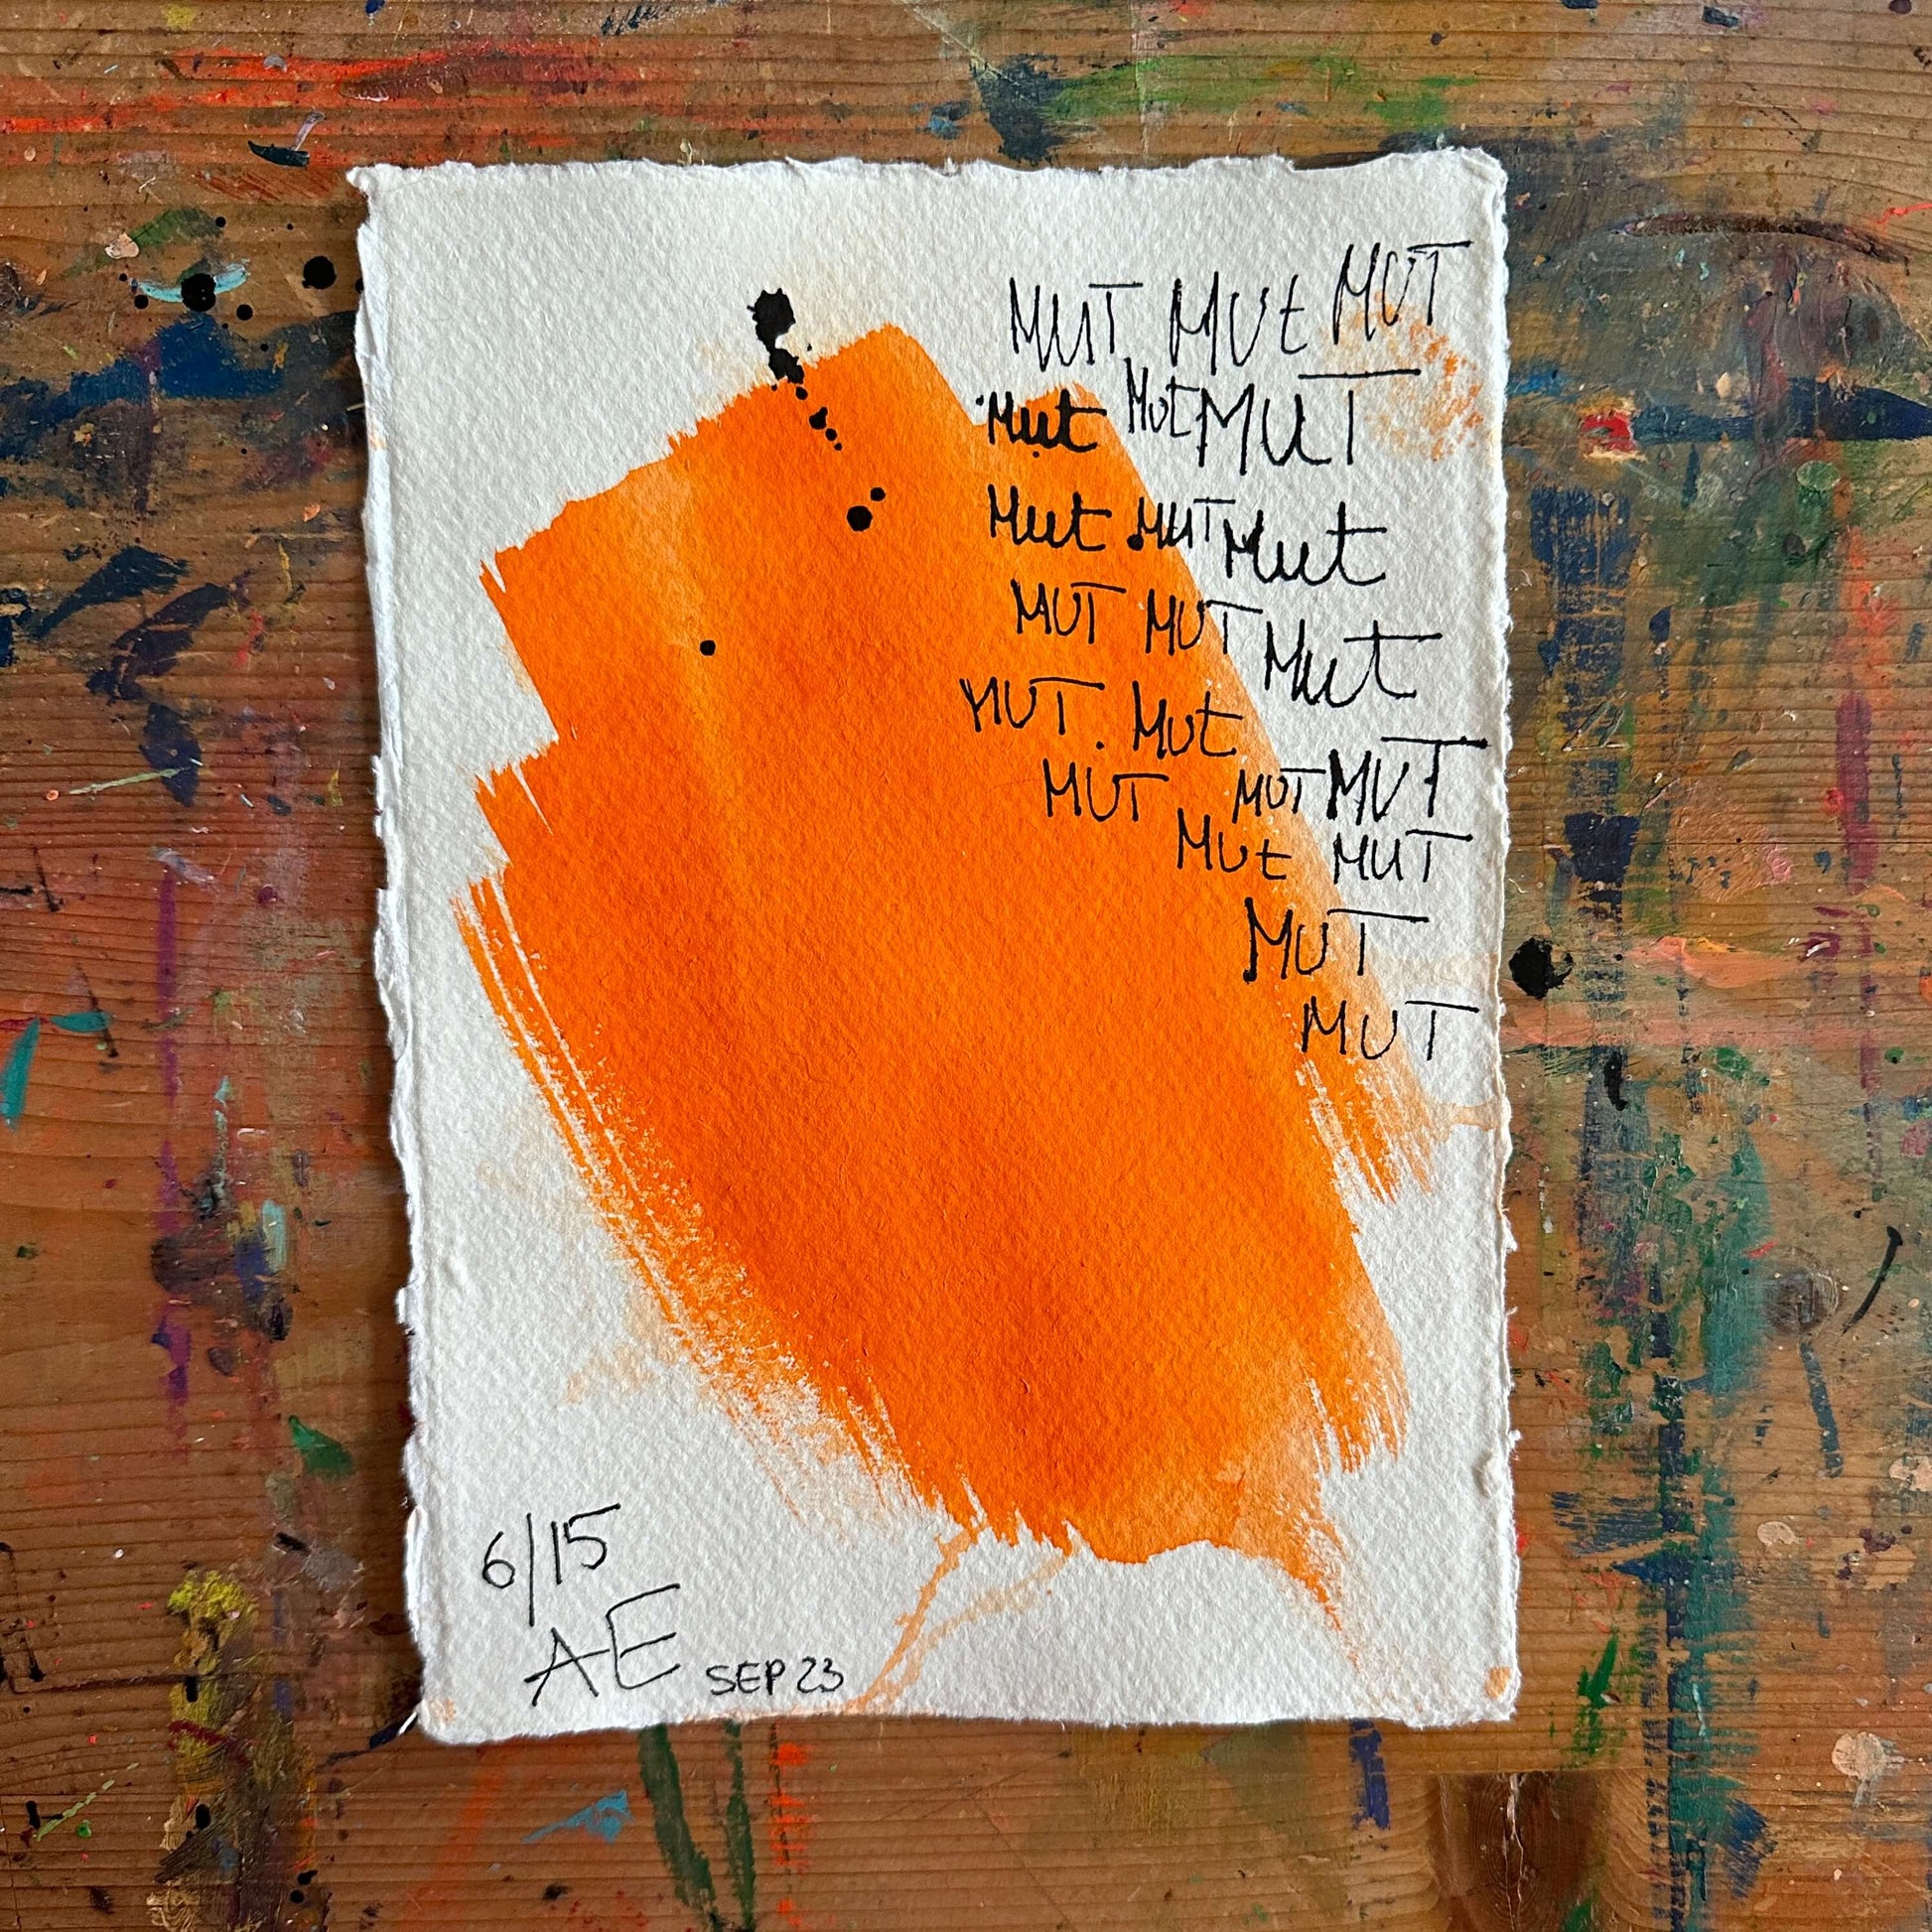 MUT MUt MUT
Mut Mut MUT
Mut MUT Mut
MUT MUT Mut
MUT. Mut
MUT MUT MUT
MUt MUT
MUT
MUT
6/15
AE SEP 23